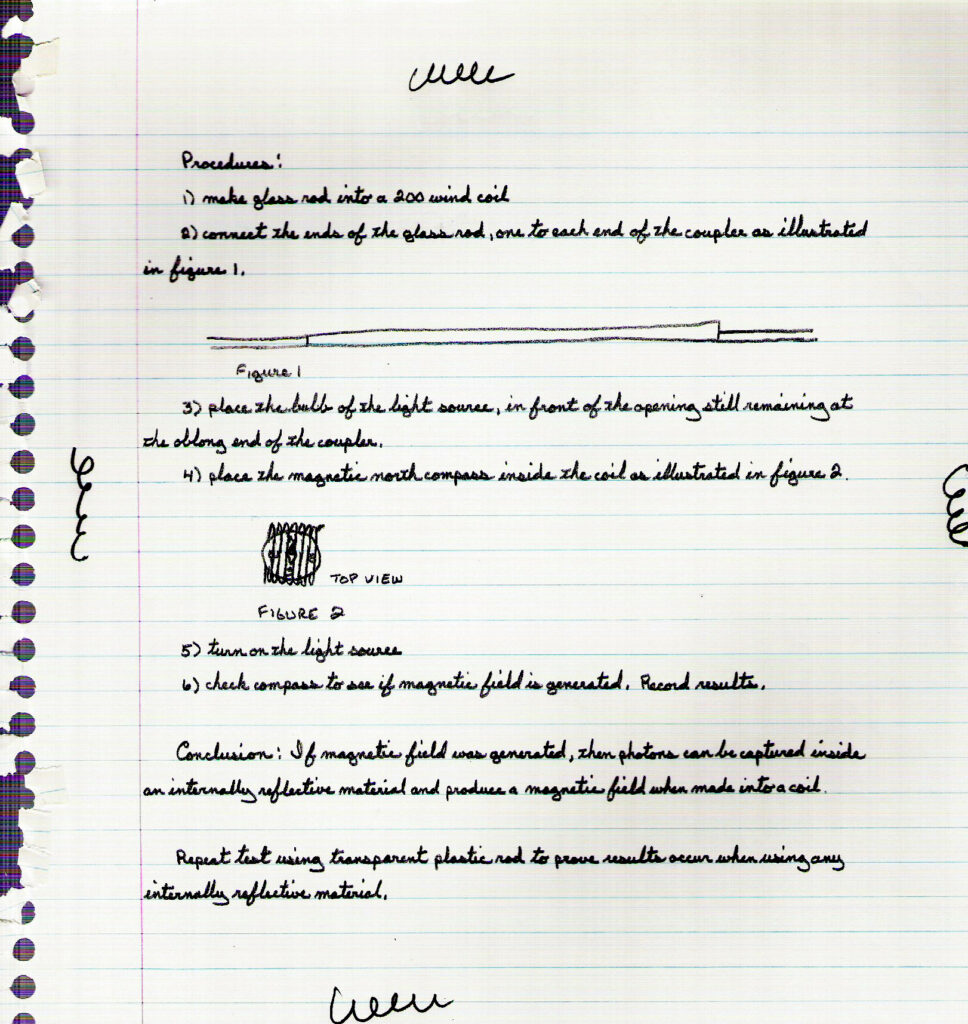 Procedures:
1) make glass rod into a 200 wind coil
2) connect the ends of the glass rod, one to each end of the coupler as illustrated
in figure 1.
Figure 1
3) place the bulb of the light source, in front of the opening still remaining at
the oblong end of the coupler.
4) place the magnetic north compass inside the coil as illustrated in figure 2.
TOP VIEW
FIGURE 2
5) turn on the light source
6) check compass to see if magnetic field is generated. Record results.
Conclusion: If magnetic field was generated, then photons can be captured inside
an internally reflective material and produce a magnetic field when made into a coil.
Repeat test using transparent plastic rod to prove results occur when using any
internally reflective material.